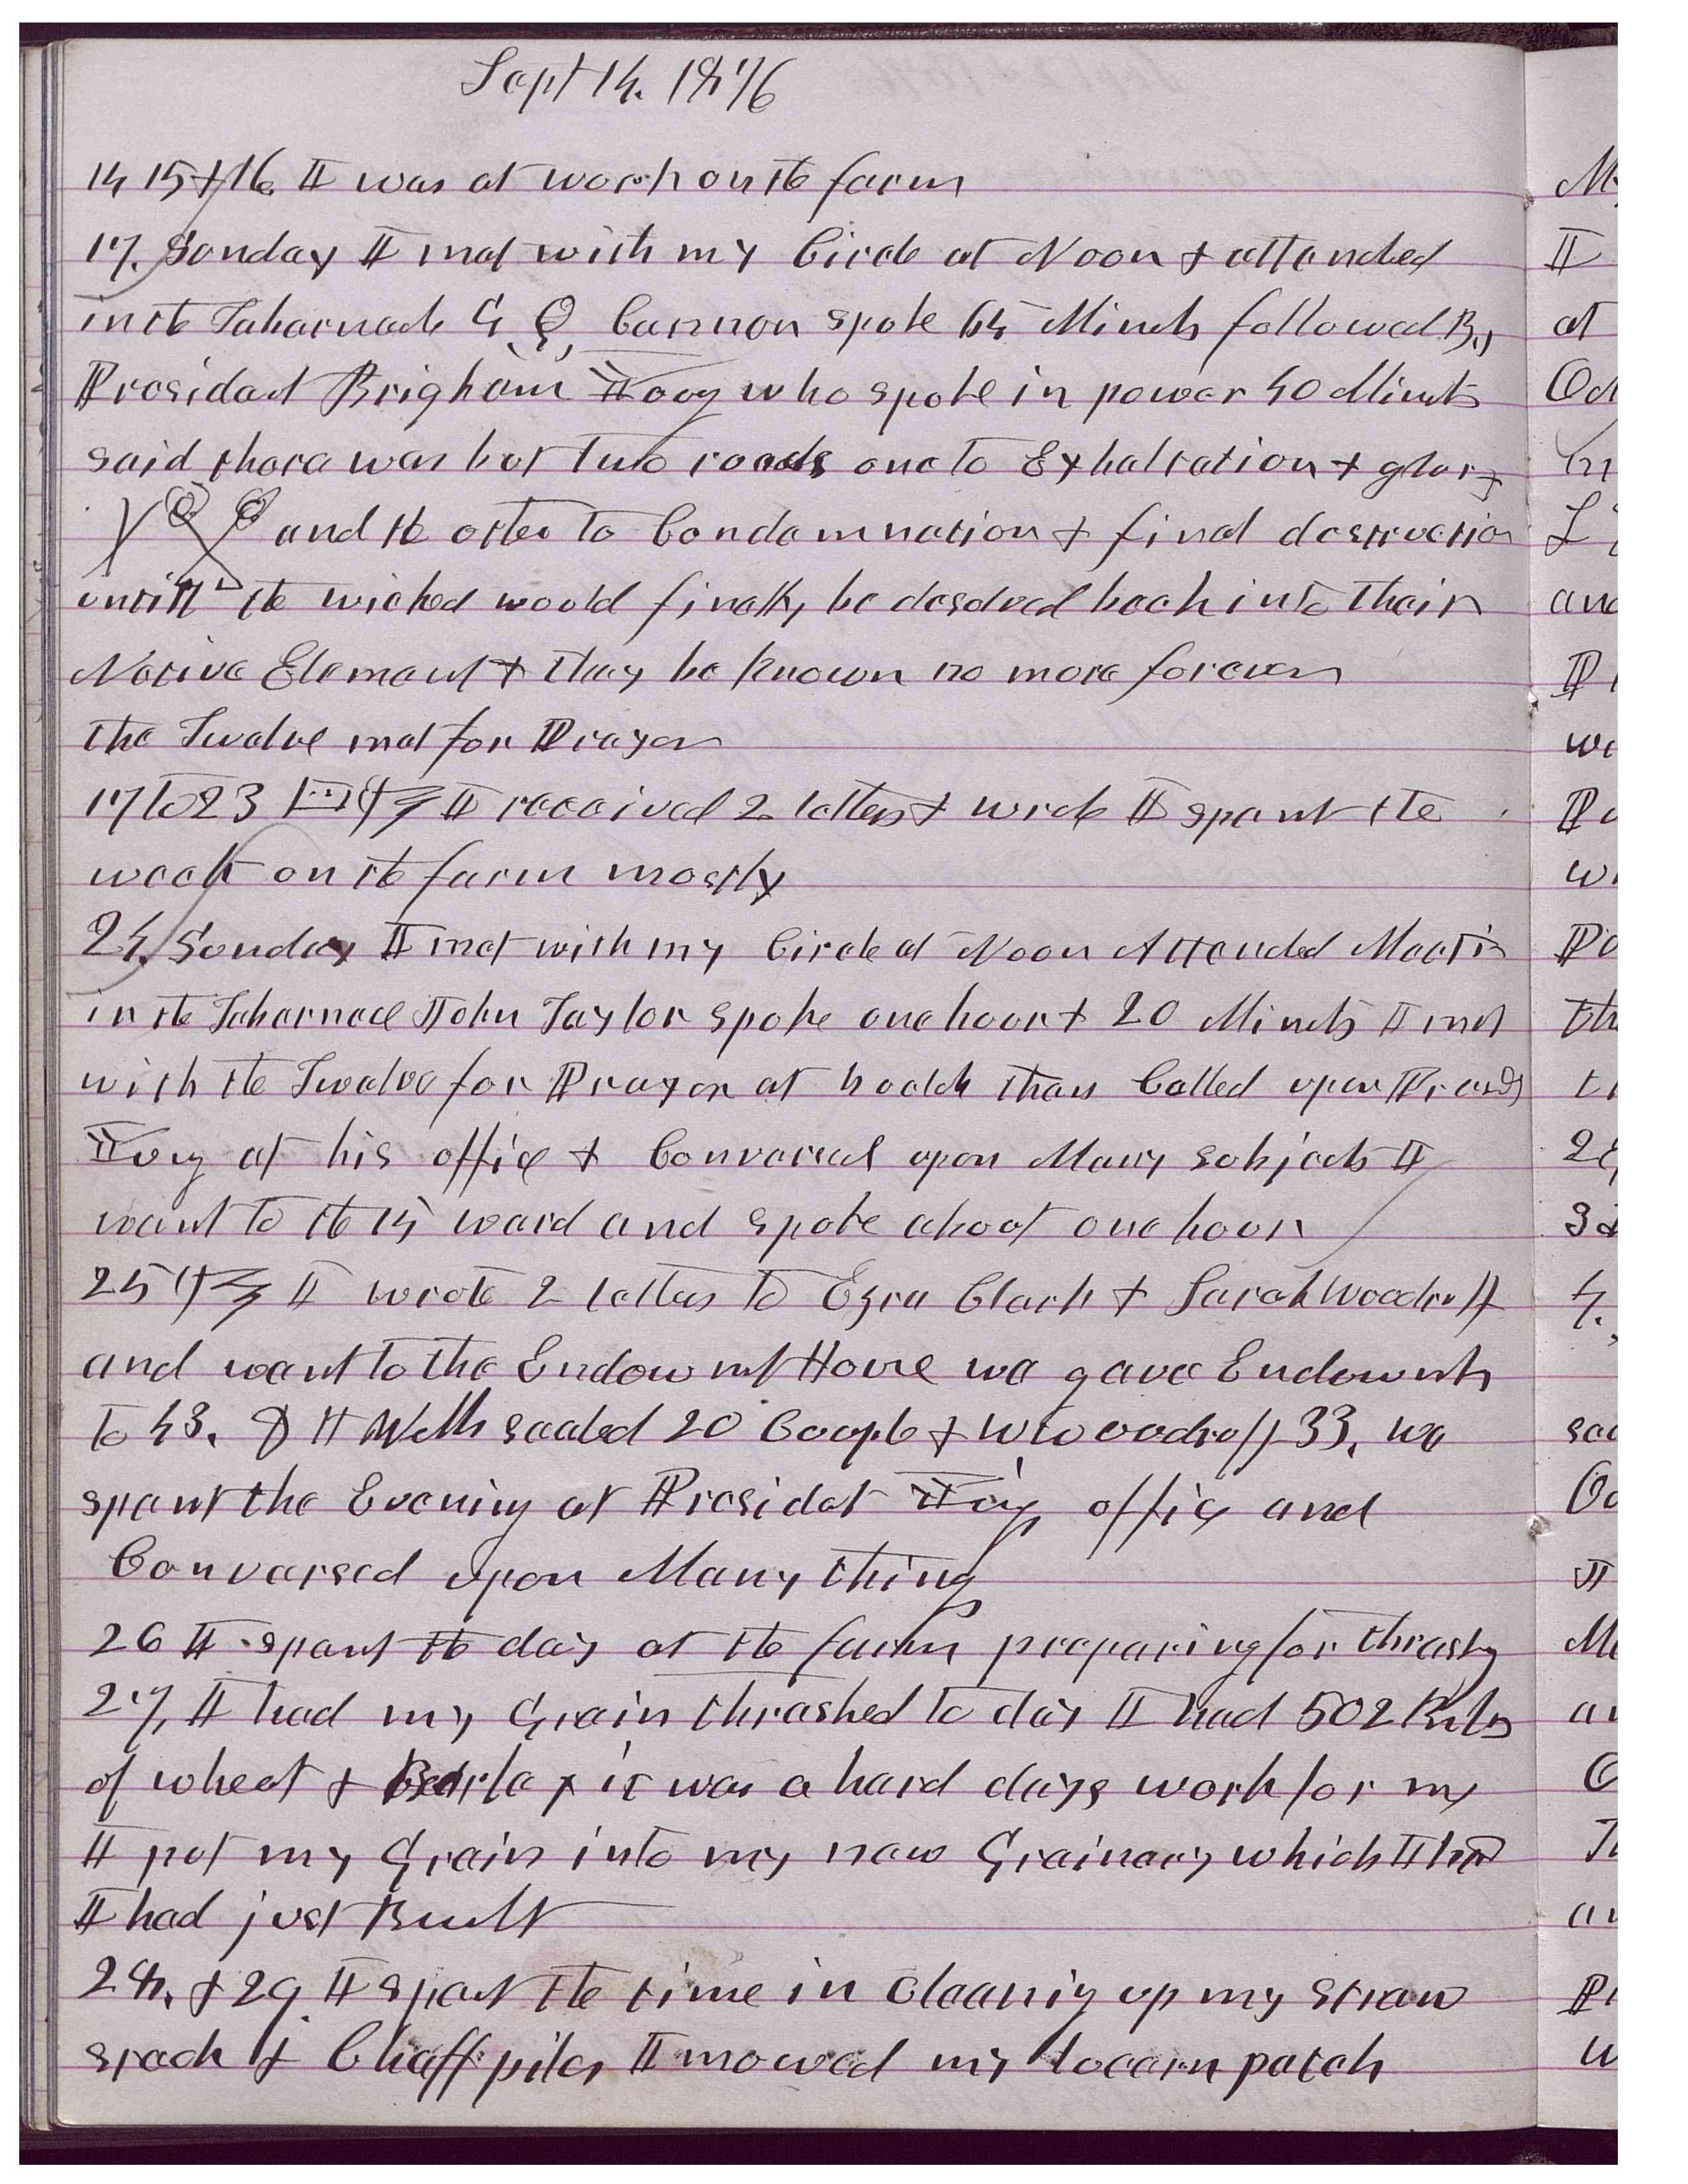 Sept 14. 1876
14 15 & 16 I was at work on the farm
17. Sunday I met with my Circle at Noon & attended
in the Tabernacle G. Q. Cannon spoke 65 Minuts followed By
President Brigham Young who spoke in power 40 Minuts
said there was but two roads one to Exhaltation & glory
and the other to Condemnation & final destruction
untill the wicked would finally be desolved back into their
Native Element & they be known no more forever
the Twelve met for Prayer
17 to 23 I received 2 letters & wrote I spent the
week on the farm mostly
24. Sunday I met with my Circle at Noon Attended Meeting
in the Tabernacle John Taylor spoke one hour & 20 Minuts I met
with the Twelve for Prayer at 4 oclok then Called upon Presidt
Young at his office & Conversed upon Many subjects I
went to the 14 ward and spoke about one hour
25 I wrote 2 letters to Ezra Clark & Sarah Woodruff
and went to the Endowmt House we gave Endowmts
to 43. D H Wells sealed 20 Couple & W Woodruff 33. we
spent the Evening at Presidet Young office and
Conversed upon Many things
26 I spent the day at the farm preparing for thrashg
27, I had my Grain thrashed to day I had 502 Bushs
of wheat & Barley it was a hard days work for me
I put my Grain into my new Grainary which I had
I had just Built
28. & 29 I spent the time in cleaning up my straw
stack & Chaff piles I mowed my lucern patch